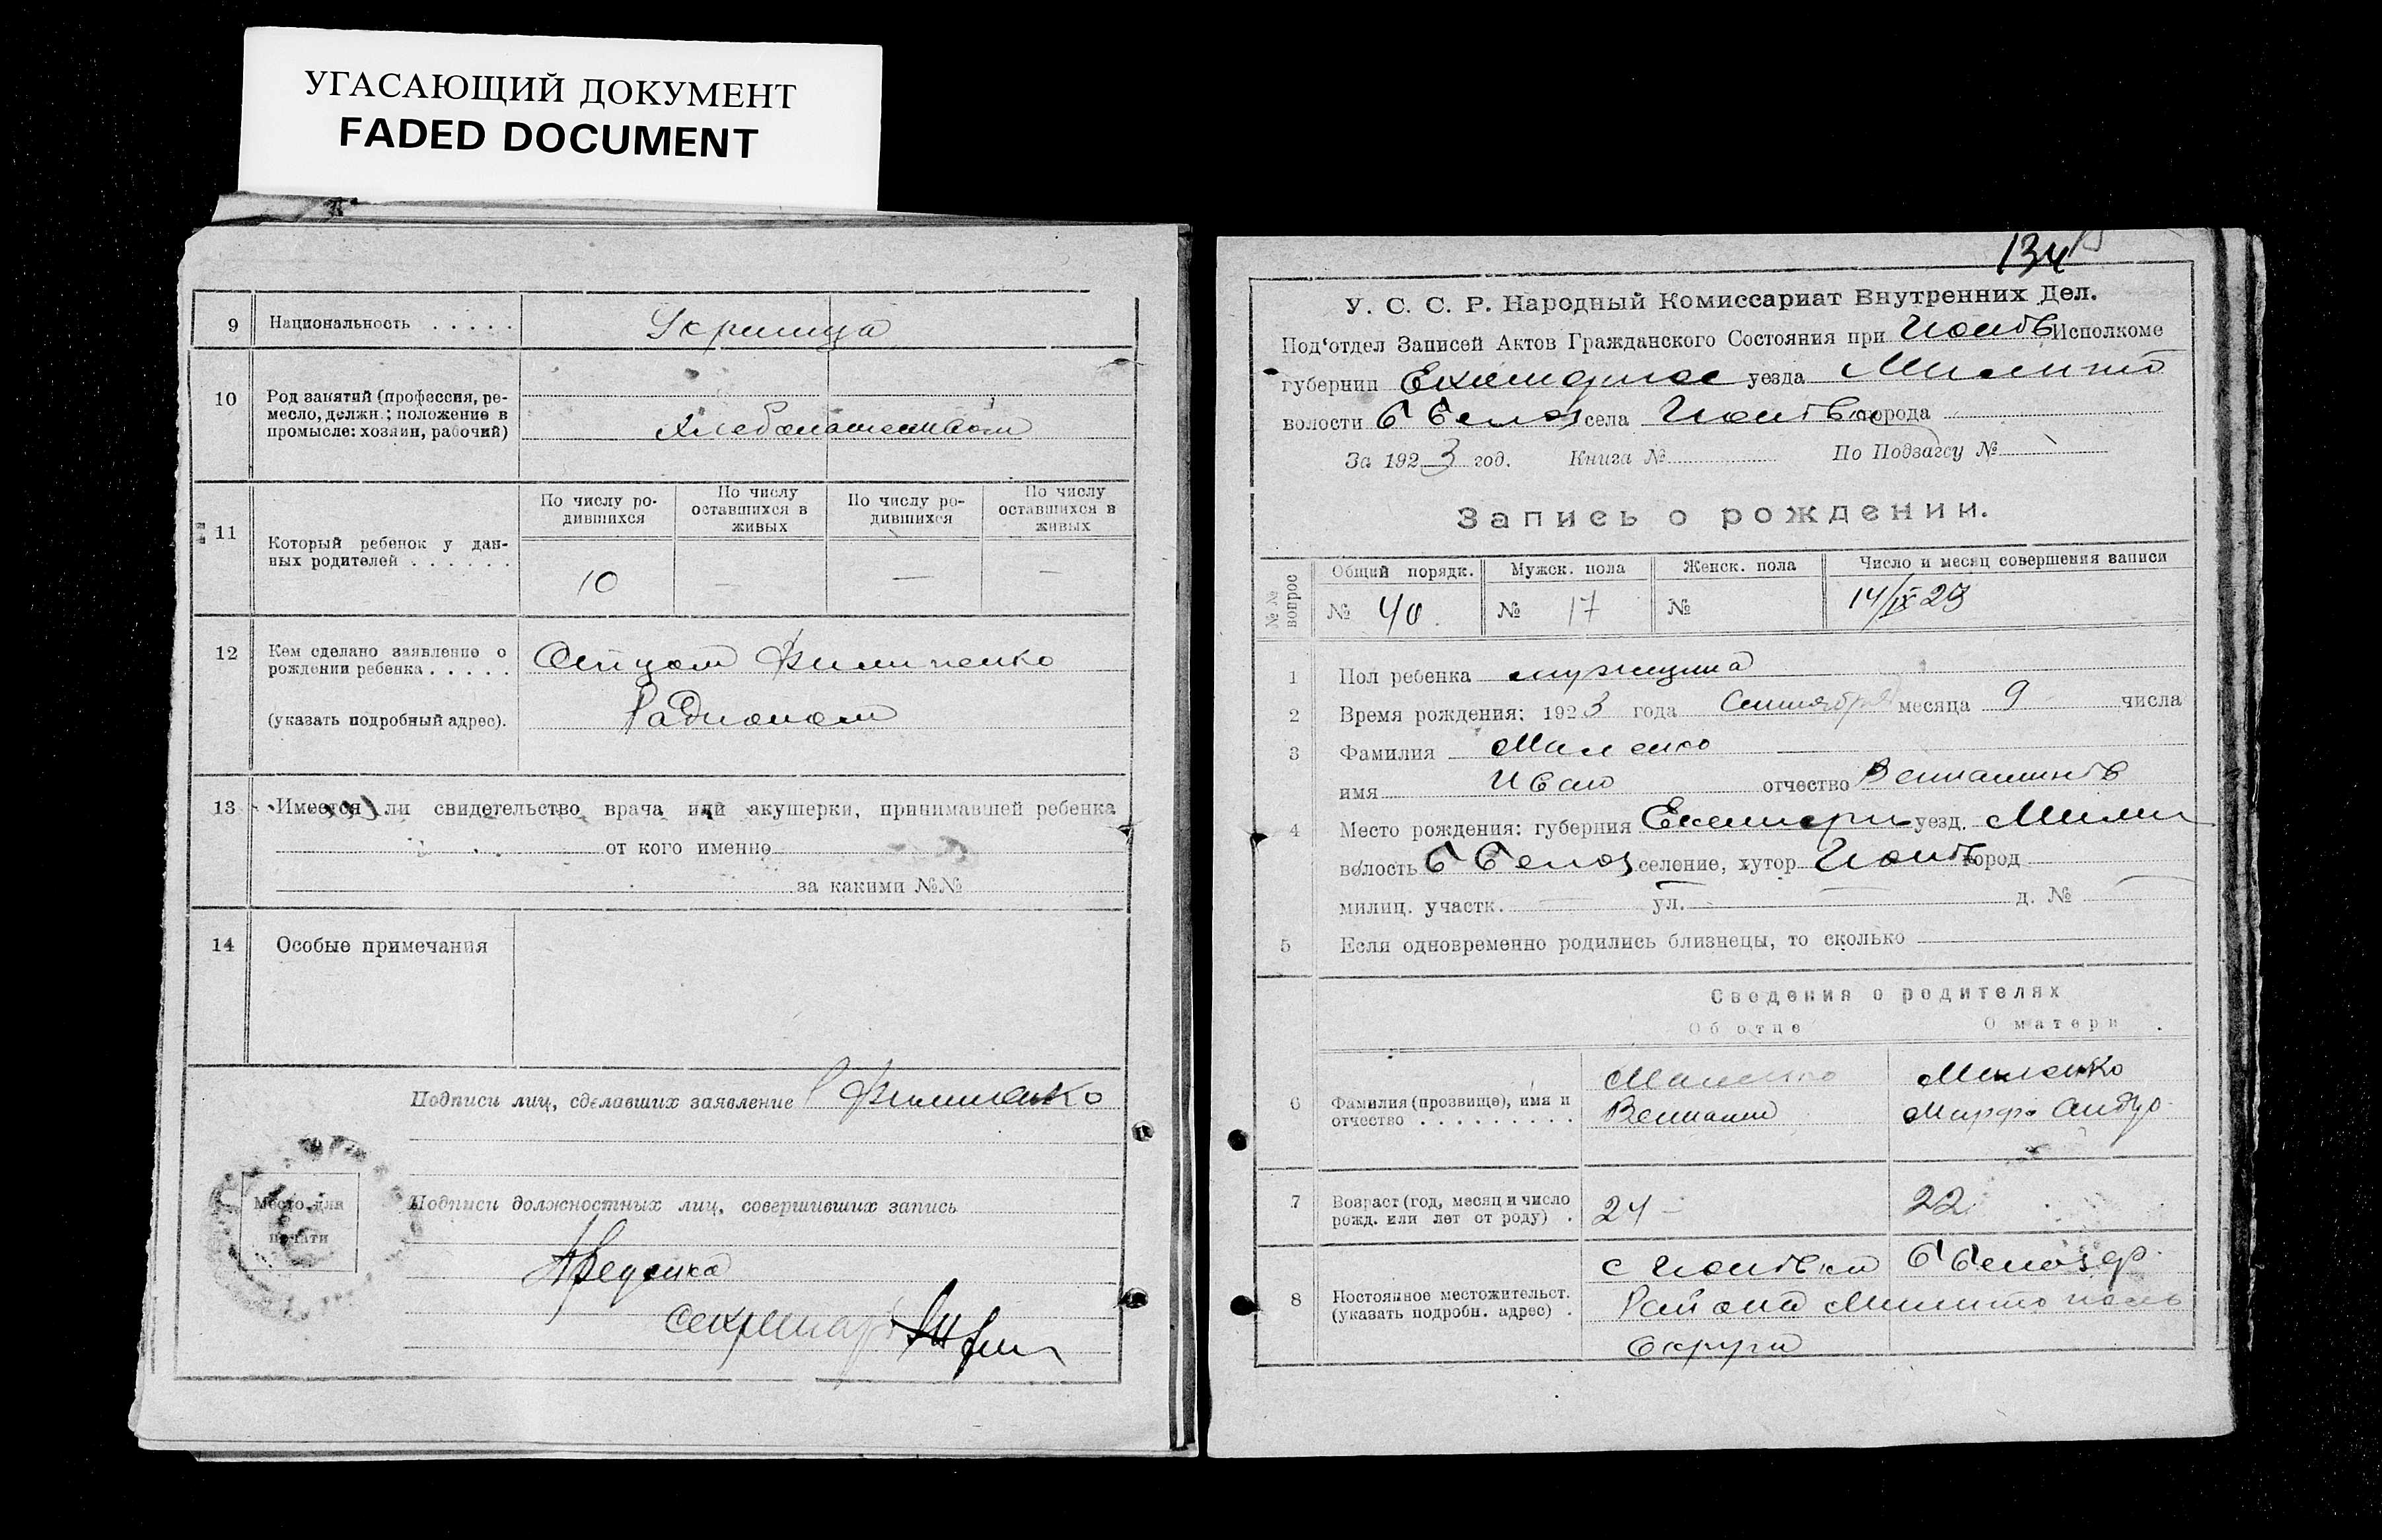 УГАСАЮЩИЙ ДОКУМЕНТ
FADED DOCUMENT
9 Национальность . . . . .
10 Род занятий (профессия, ре-
месло, должн.; положение в
промысле: хозяин, рабочий)
Хлебопашеством
11 Который ребенок у дан-
ных родителей . . . . . .
По числу ро-
дившихся
По числу
оставшихся в
живых
По числу ро-
дившихся
По числу
оставшихся в
живых
10 — — —
12 Кем сделано заявление о
рождении ребенка . . . . .
(указать подробный адрес).
Отцом Филипенко
Радионом
13 Имеется ли свидетельство врача или акушерки, принимавшей ребенка
от кого именно
за какими №№
14 Особые примечания
Подписи лиц, сделавших заявление
Подписи должностных лиц, совершивших запись
Место для
печати
секретарь
134
У. С. С. Р. Народный Комиссариат Внутренних Дел.
Под'отдел Записей Актов Гражданского Состояния при Исполкоме
губернии уезда Мелито
волости Б Белоз села города
За 1923 год. Книга № По Подзагсу №
Запись о рождении.
№№ вопрос
Общий порядк. Мужск. пола Женск. пола Число и месяц совершения записи
№ 40. № 17 № 14/IX 23
1 Пол ребенка мужщина
2 Время рождения: 1923 года Сентября месяца 9 числа
3 Фамилия Маленко
имя Иван отчество
4 Место рождения: губерния уезд. Мели
волость Б Белоз селение, хутор город
милиц. участк. — ул. — д. № —
5 Если одновременно родились близнецы, то сколько
Сведения о родителях
Об отце О матери
6 Фамилия (прозвище), имя и
отчество . . . . . . . . .
Маленко
Вениами
Маленко
Марфа
7 Возраст (год, месяц и число
рожд. или лет от роду) .
24 — 22
8 Постоянное местожительст.
(указать подробн. адрес) .
с Б Белозер
Района Мелитополь
Округа